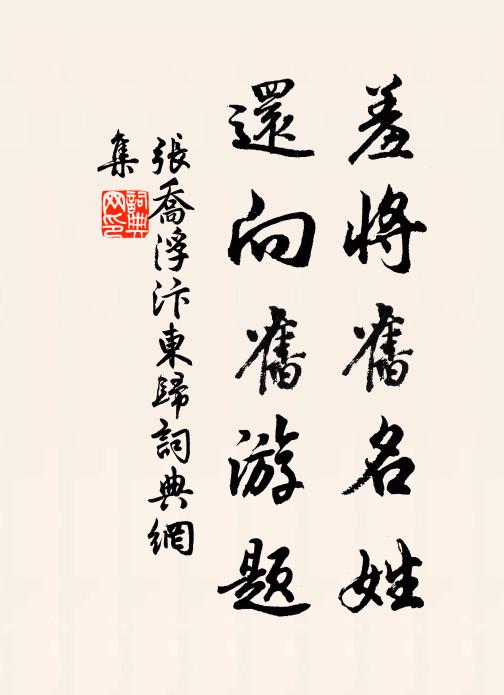 羞將舊名姓
還向舊游題
張喬浮汴東歸詞典網
集
詞典
网印